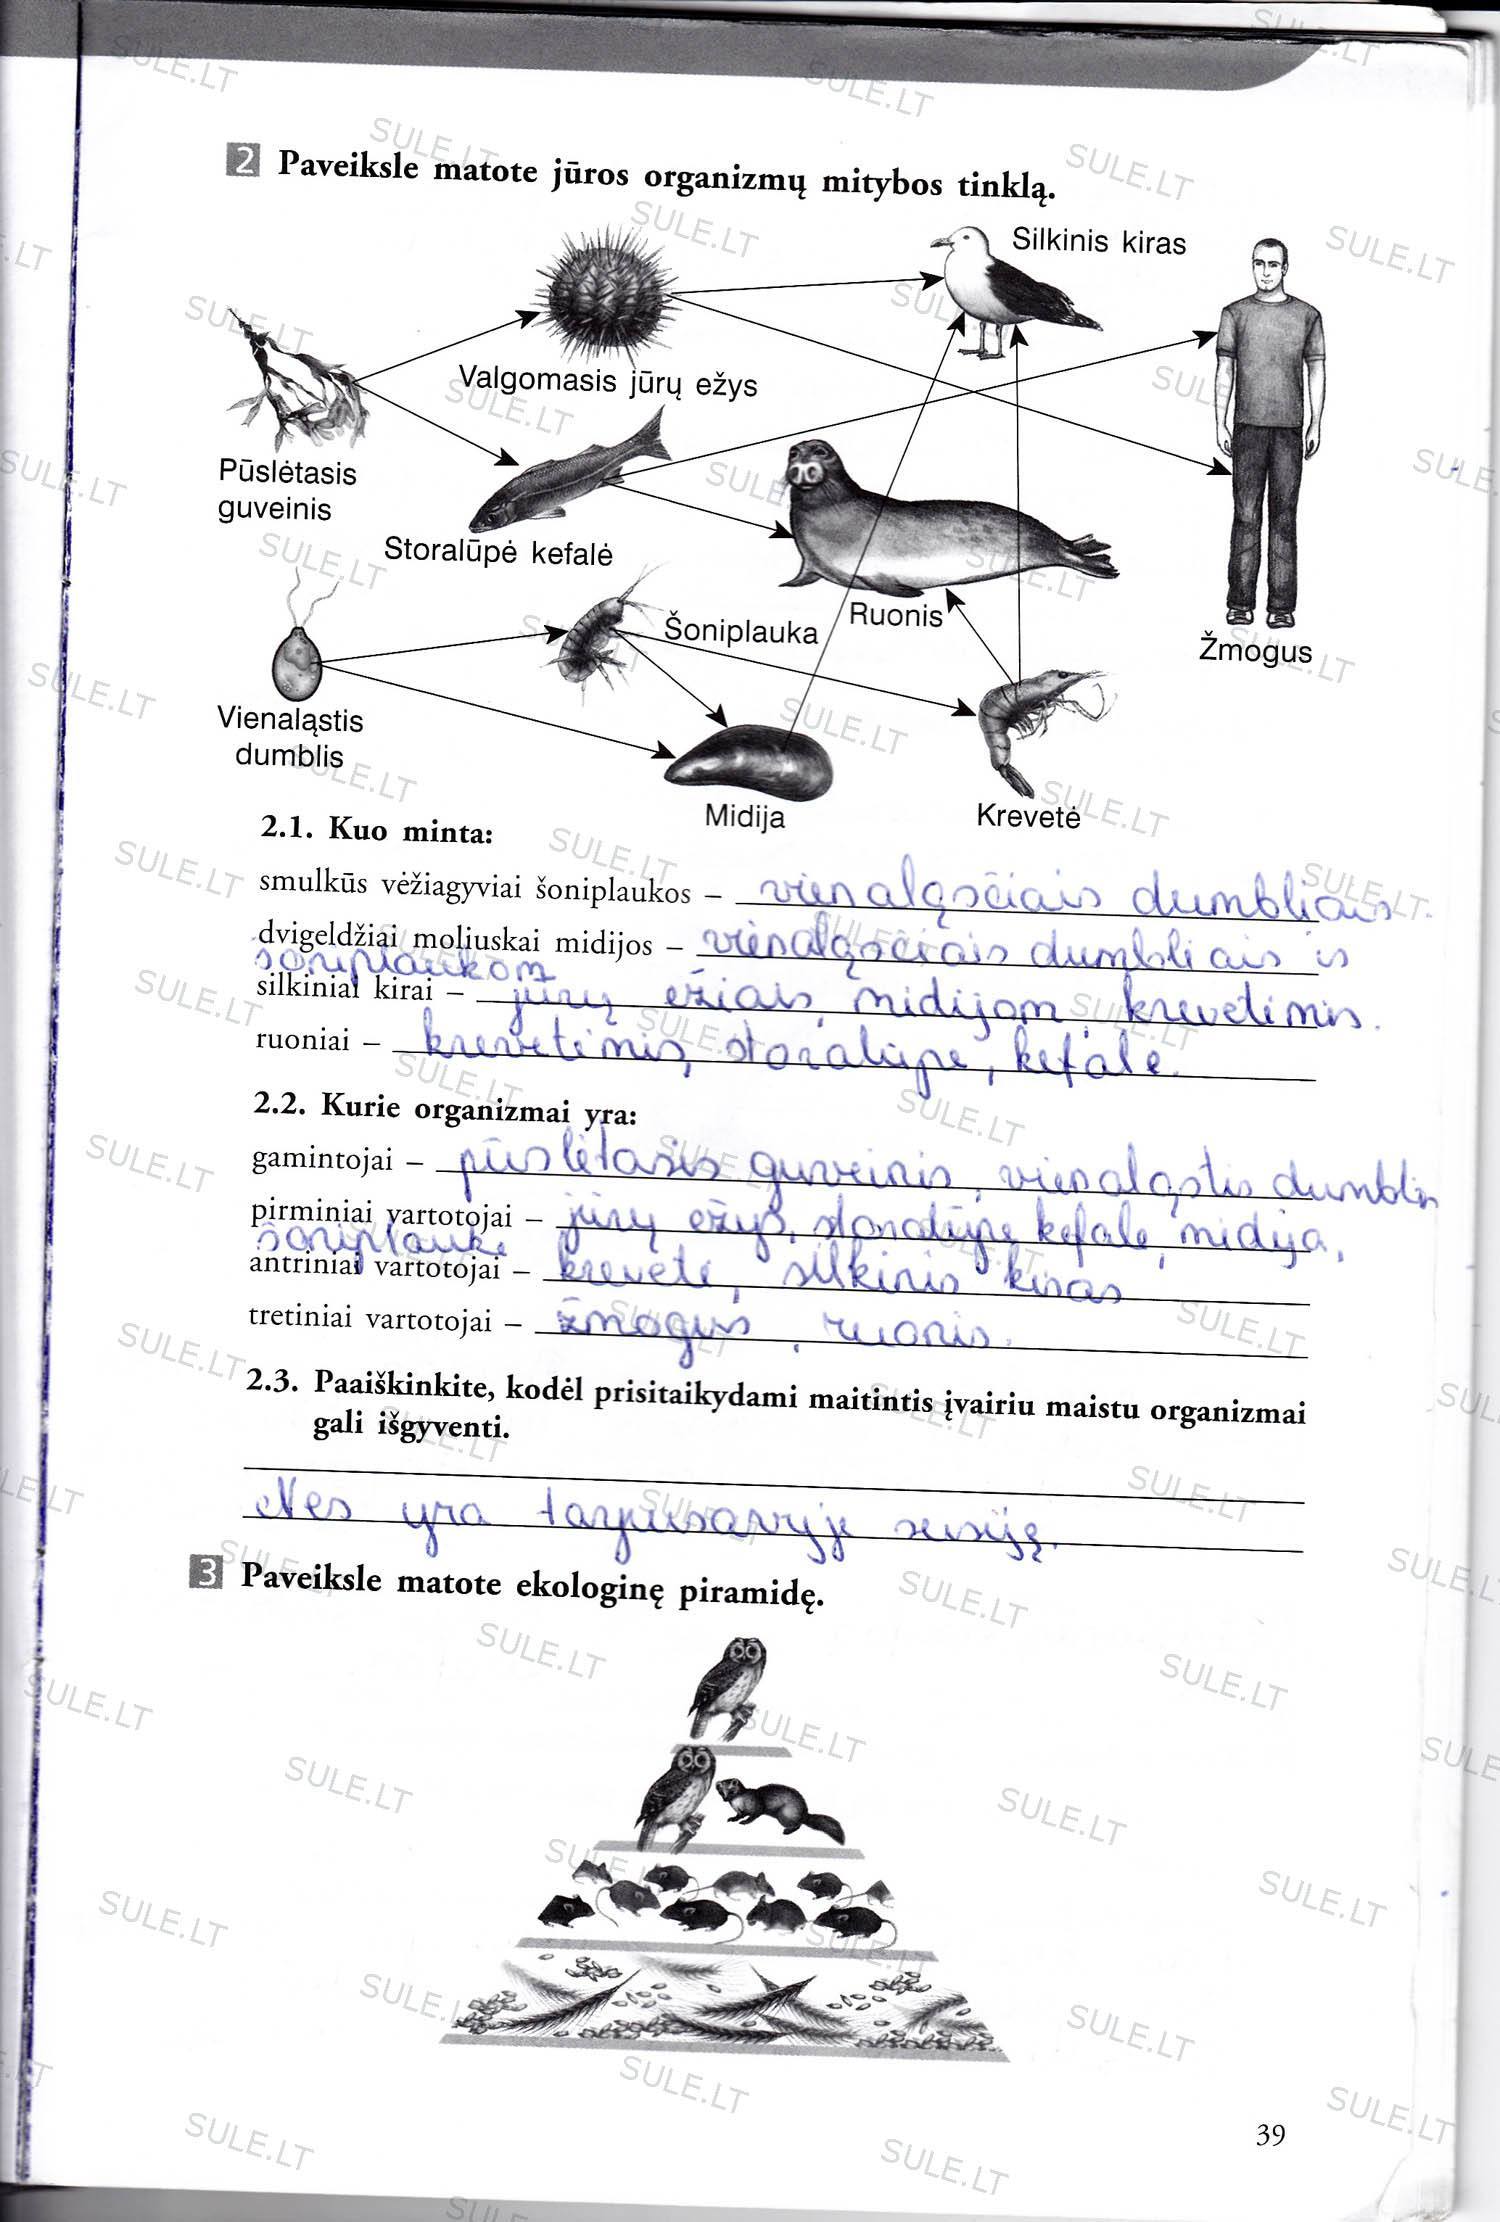 2 Paveiksle matote jūros organizmų mitybos tinklą.
Silkinis kiras
Valgomasis jūrų ežys
Pūslėtasis
guveinis
Storalūpė kefalė
Ruonis
Šoniplauka
Žmogus
Vienaląstis
dumblis
Midija
Krevetė
2.1. Kuo minta:
smulkūs vėžiagyviai šoniplaukos – vienaląsčiais dumbliais.
dvigeldžiai moliuskai midijos – vienaląsčiais dumbliais is
soniplaukom
silkiniai kirai – jūrų ežiais, midijom, krevetėmis.
ruoniai – krevetėmis, storalūpe, kefale.
2.2. Kurie organizmai yra:
gamintojai – pūslėtasis guveinis, vienaląstis dumblis
pirminiai vartotojai – jūrų ežys, storalūpe kefale, midija,
šoniplauke
antriniai vartotojai – krevetė, silkinis kiras
tretiniai vartotojai – žmogus, ruonis.
2.3. Paaiškinkite, kodėl prisitaikydami maitintis įvairiu maistu organizmai
gali išgyventi.
Nes yra tarpusavyje susiję.
3 Paveiksle matote ekologinę piramidę.
39
SULE.LT